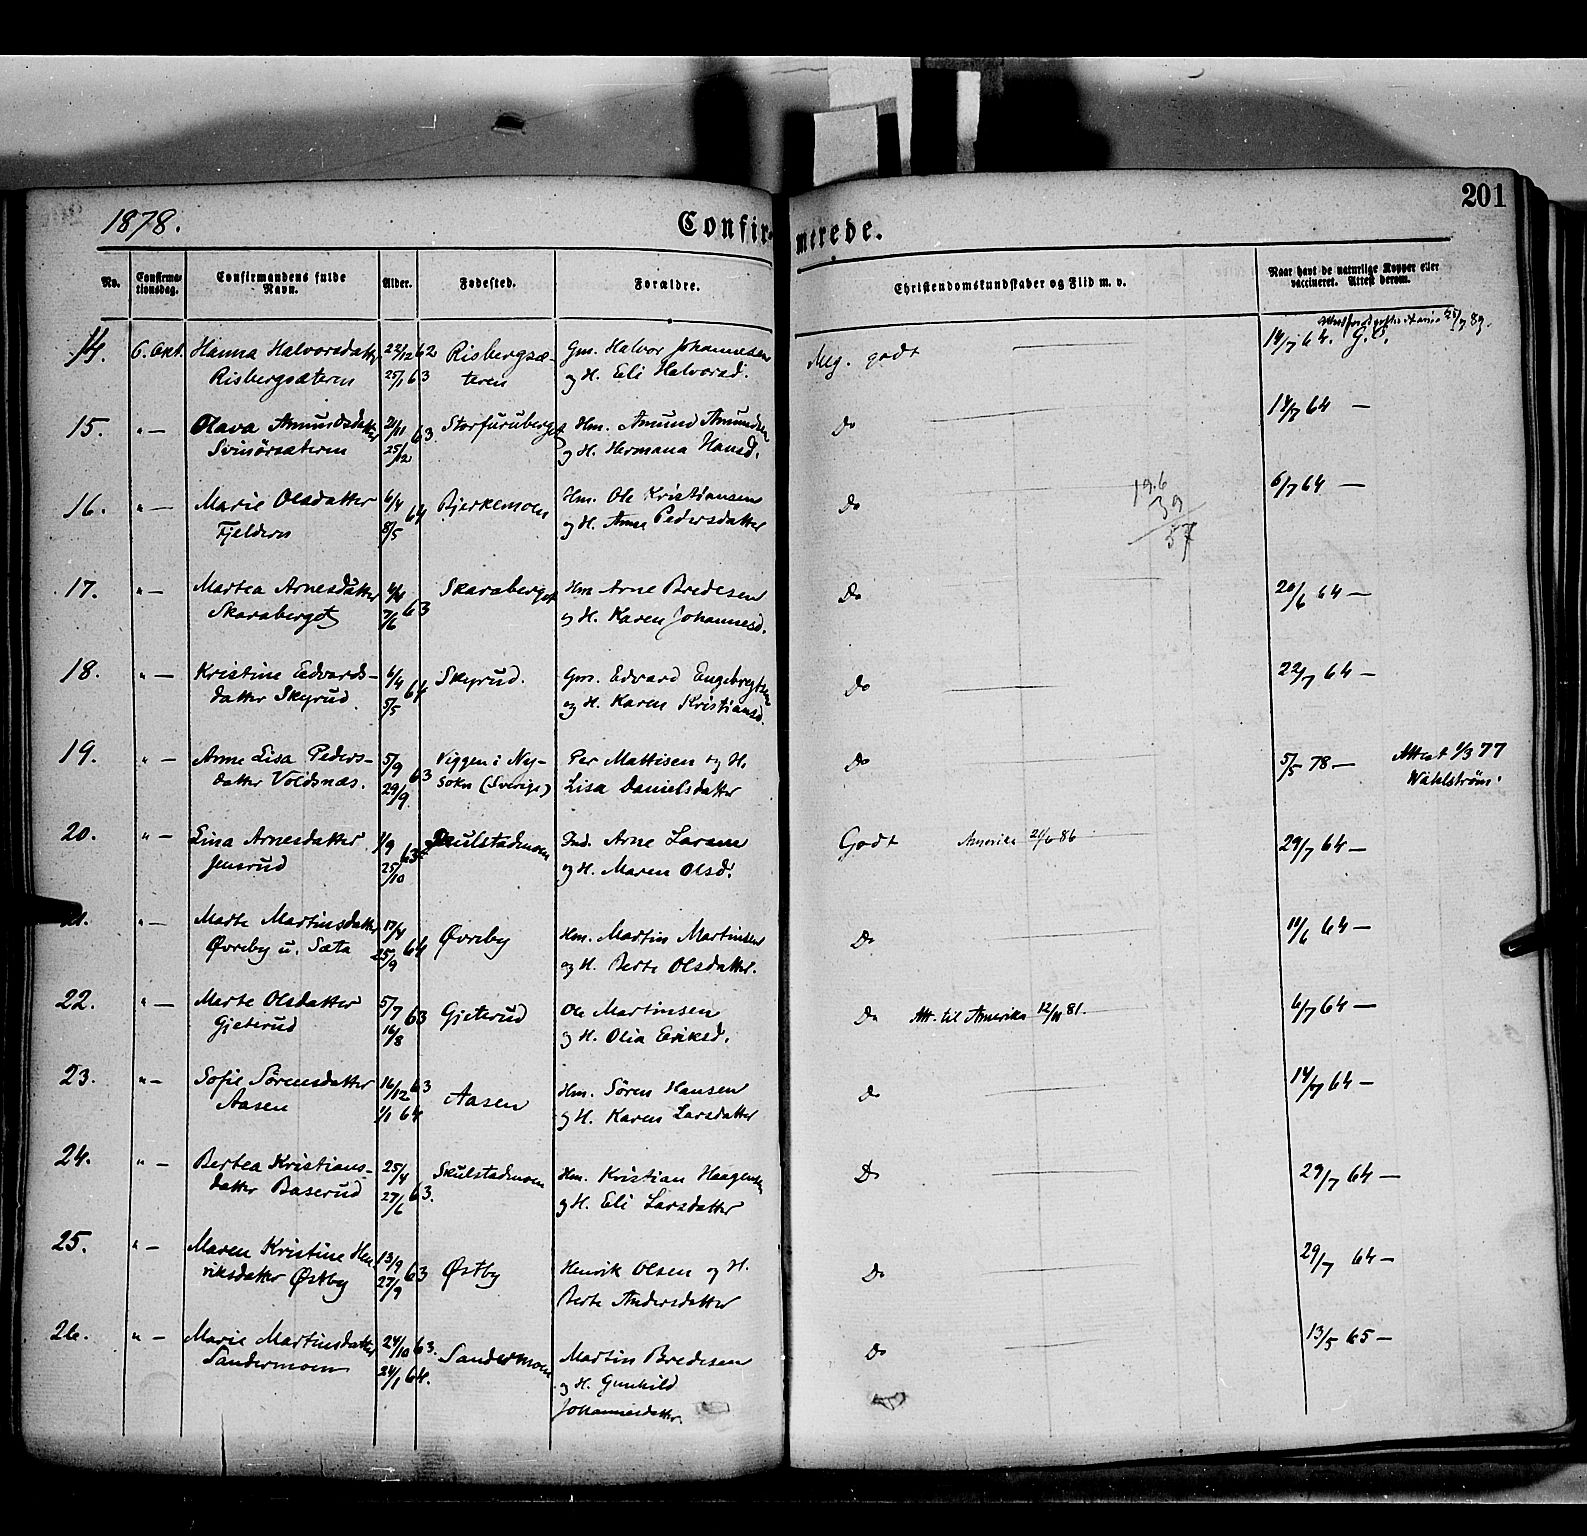 1878.
Confir-
merede.
201
No.
Confirma-
tionsdag.
Confirmandens fulde
Navn.
Alder.
Fødested.
Forældre.
Christendomskundskaber og Flid m. v.
Naar havt de naturlige Kopper eller
vaccineret. Attest derom.
14. 6. Okt. Hanna Halvorsdatter 22/12 62 Risbergsæ- Gm. Halvor Johannesen Meg. godt 14/7 64. G.S.
Risbergsæteren 25/1 63 teren og H. Eli Halvorsd.
15. " — Olava Amundsdatter 21/11 63. Storfuruberget Hm. Amund Amundsen Do 14/7 64 —
Svinörsæteren 25/12 og H. Hermana Hansd.
16. " — Marie Olsdatter 6/4 64 Bjerkemoen Hm. Ole Kristiansen Do 6/7 64 —
Fjelderen 8/5 og H. Anne Pedersdatter
19.6
39
57
17. " — Martea Arnesdatter 4/4 63 Skaraberget Hm Arne Bredesen Do 20/6 64 —
Skaraberget 7/6 og H. Karen Johannesd.
18. " — Kristine Edvards- 6/4 64 Skyrud. Gm. Edvard Engebregtsen Do 22/7 64 —
datter Skyrud. 5/5 og H. Karen Kristiansd.
19. " — Anne Lisa Peders- 5/9 63 Viggen i Ny- Per Mattisen og H. Do 5/5 78 — Attest 1/3 77
datter Voldsnæs. 29/9. sokn (Sverige) Lisa Danielsdatter Wahlström.
20. " — Lina Arnesdatter 1/9 63 Skulstadmoen Ind. Arne Larsen Godt Amerika 86 29/7 64 —
Jensrud 25/10 og H. Maren Olsd.
21. " — Marte Martinsdatter 17/4 64 Øvreby Hm. Martin Martinsen Do 11/6 64 —
Øvreby u. Sæta 25/9 og H. Berte Olsdatter.
22. " — Marte Olsdatter 5/7 63 Gjeterud Ole Martinsen Do Att. til Amerika 12/11 81. 6/7 64 —
Gjeterud 16/8 og H. Olia Eriksd.
23. " — Sofie Sörensdatter 16/12 63 Aasen Hm. Sören Hansen Do 14/7 64 —
Aasen 1/1 64 og H. Karen Larsdatter
24. " — Bertea Kristians- 25/4 63. Skulstadmoen Hm. Kristian Haagensen Do 29/7 64 —
datter Baserud 27/6 og H. Eli Larsdatter
25. " — Maren Kristine Hen- 13/9 63 Østby Henrik Olsen og H. Do 29/7 64 —
riksdatter Østby 27/9 Berte Andersdatter
26. " — Marie Martinsdatter 24/10 63. Sandermoen Martin Bredesen Do 13/5 65 —
Sandermoen 24/1 64. og H. Gunhild
Johannesdatter.